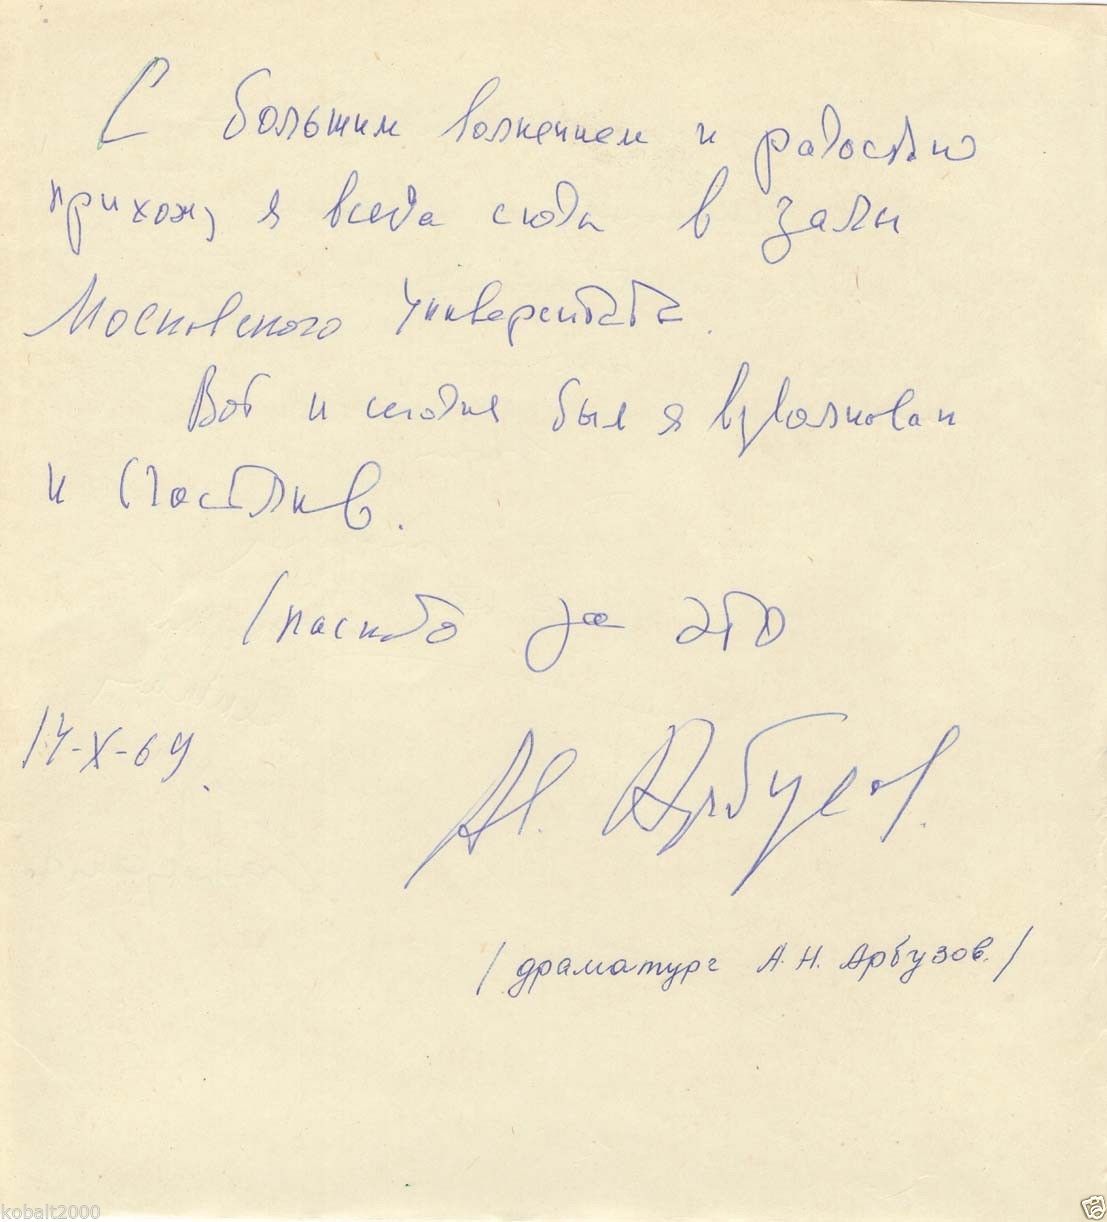 С большим волнением и радостью
прихожу я всегда сюда в залы
Московского Университета.
Вот и сегодня был я взволнован
и счастлив.
Спасибо за это
14-X-69.
Ал. Арбузов.
/ драматург А. Н. Арбузов. /
kobalt2000